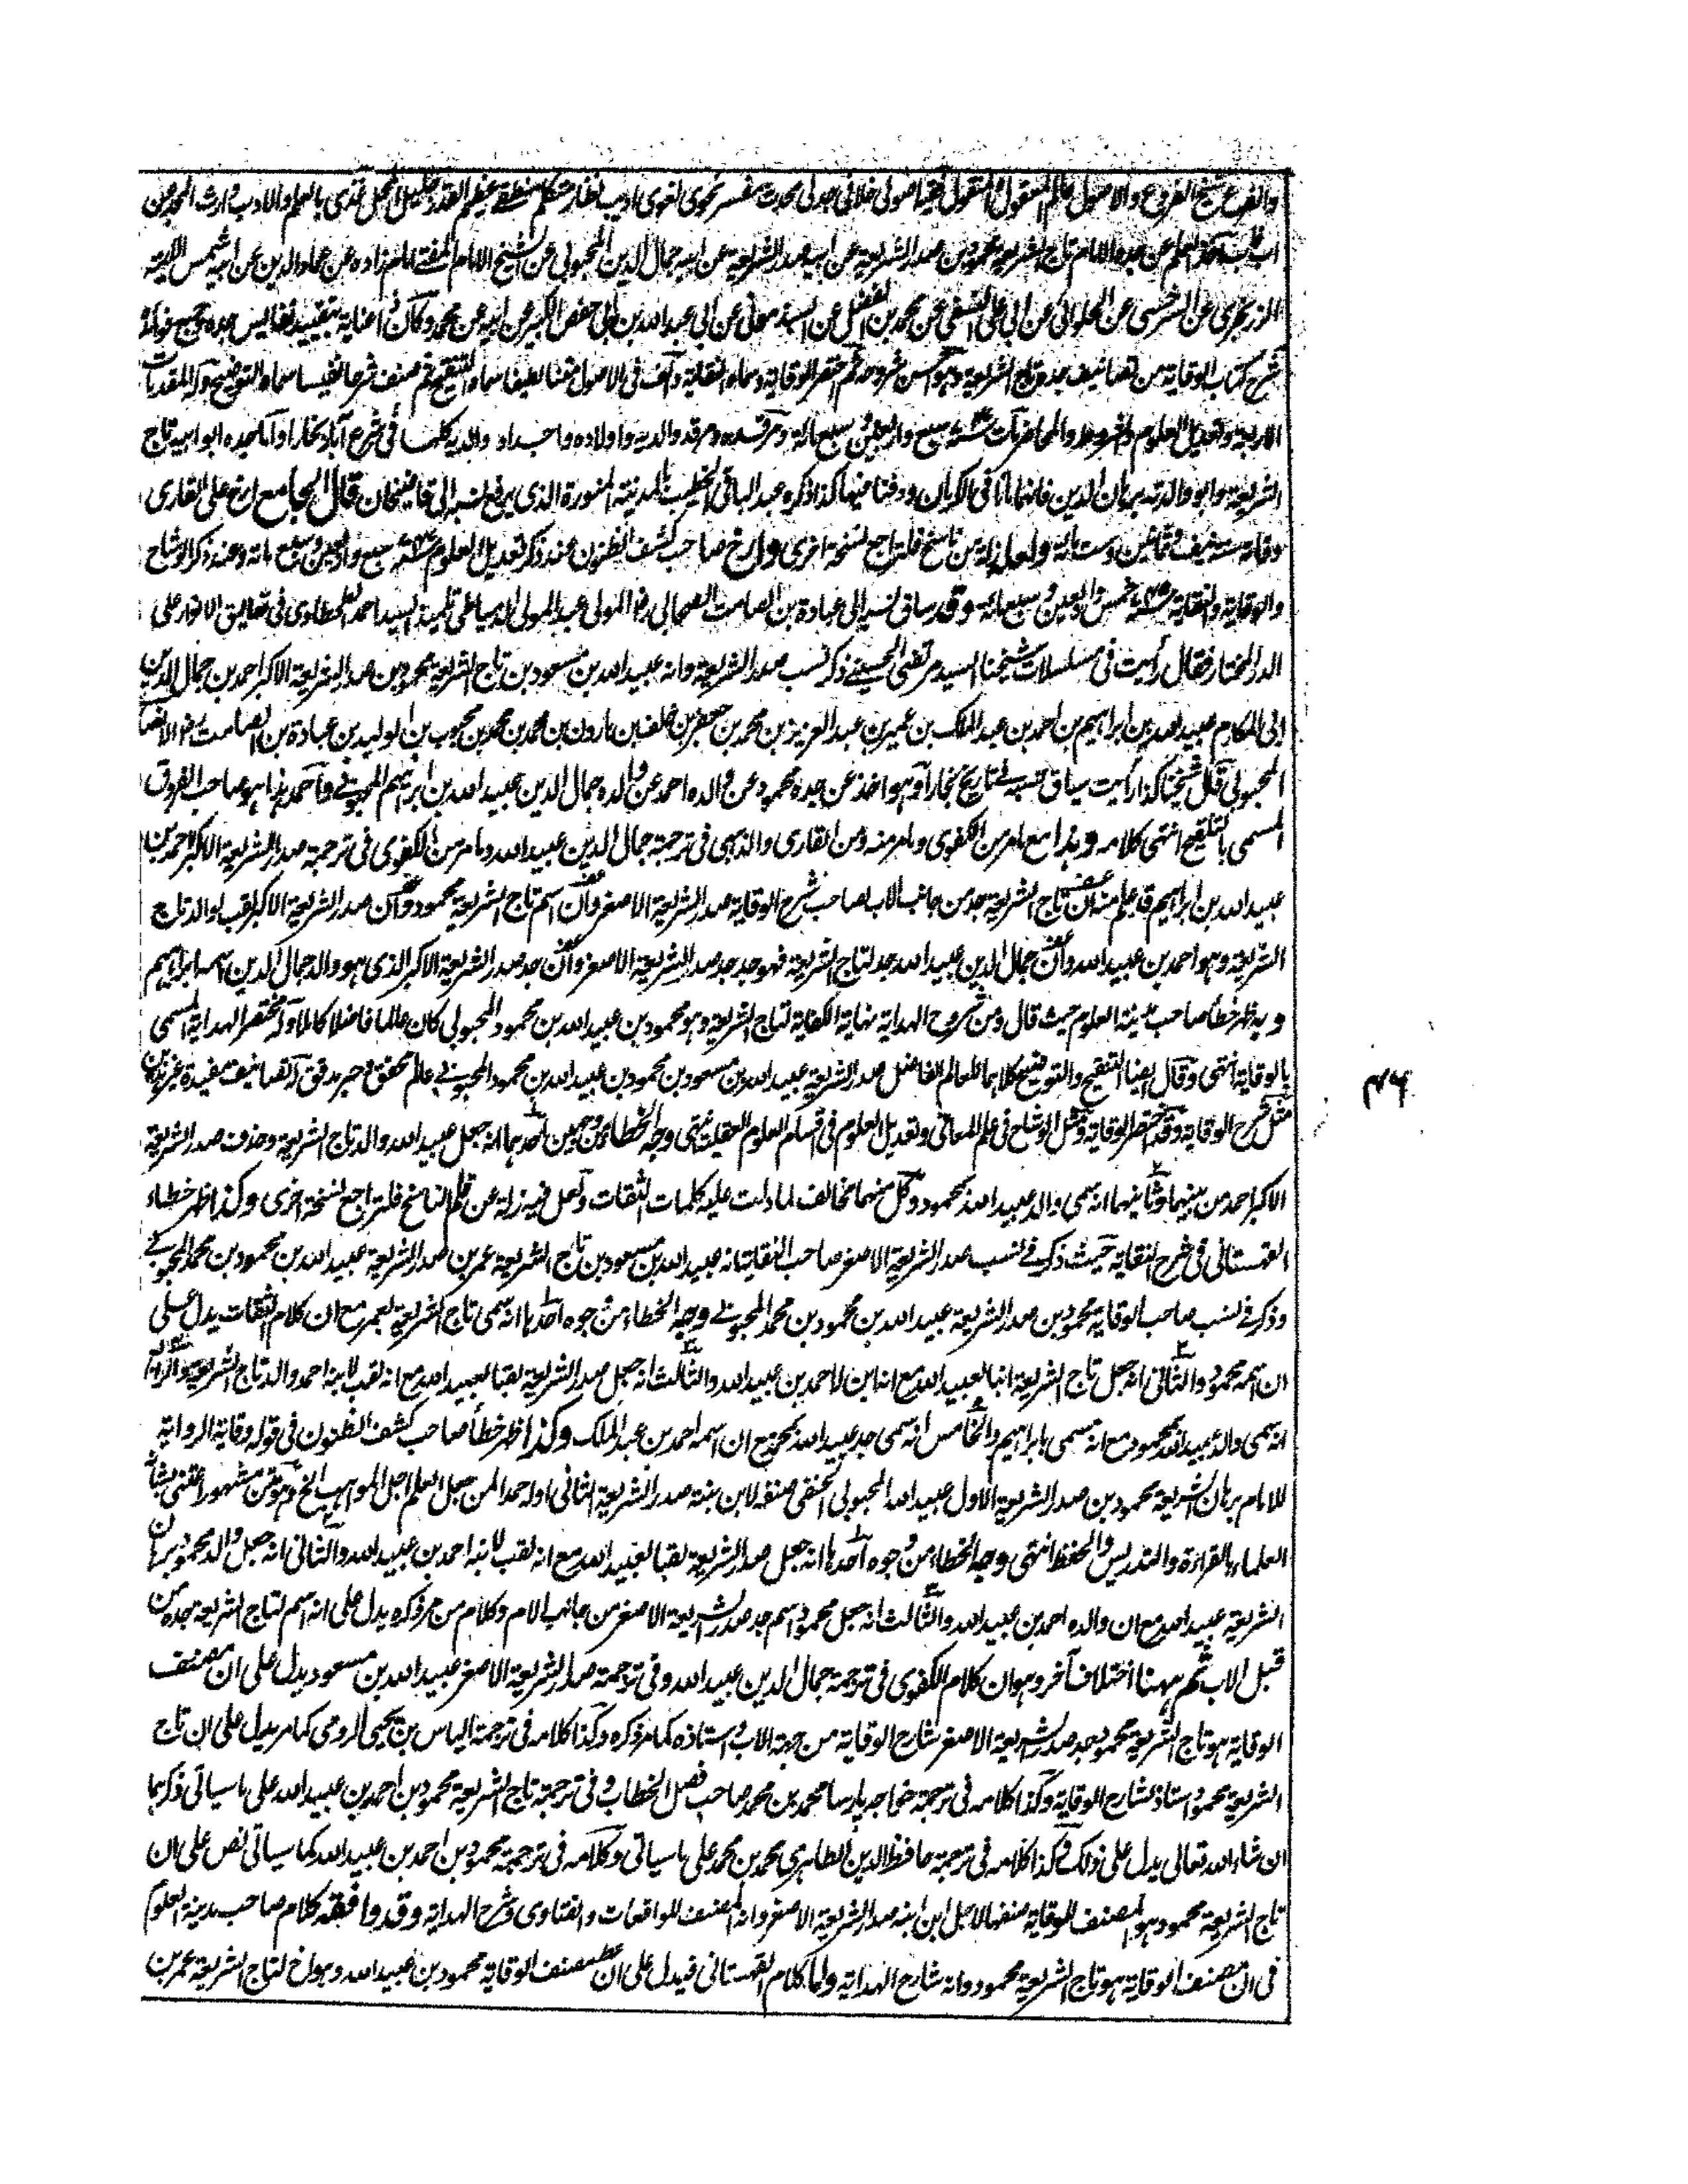 والفرع شيخ الفروع والاصول عالم المعقول والمنقول فقيه اصولى خلافى جدلى محدث مفسر نحوى لغوى اديب نظار متكلم منطقى عظيم القدر جليل المحل غذى بالعلم والادب وارث المجد عن
اب فاب اخذ العلم عن جده الامام تاج الشريعة محمود بن صدر الشريعة عن ابيه صدر الشريعة عن ابيه جمال الدين المحبوبى عن الشيخ الامام المفتى امام زاده عن عماد الدين عن ابيه شمس الائمة
الزرنجرى عن السرخسى عن الحلوائى عن ابى على النسفى عن محمد بن الفضل عن السبذمونى عن ابى عبد الله بن ابى حفص الكبير عن ابيه عن محمد وكان ذا عناية بتقييد نفائس جده وجمع فوائده
شرح كتاب الوقاية من تصانيف جده تاج الشريعة وهو احسن شروحه ثم اختصر الوقاية وسماه النقاية والف فى الاصول متنا لطيفا سماه التنقيح ثم صنف شرحا نفيسا سماه التوضيح وله المقدمات
الاربعة وتعديل العلوم والشروط والمحاضر مات سنة سبع واربعين وسبع مائة ومرقده ومرقد والديه واولاده واجداد والديه كلها فى شرع آباد بخارا واما جده ابو ابيه تاج
الشريعة وابو والدته برهان الدين فانهما ماتا فى الكرمان ودفنا فيها كذا ذكره عبد الباقى الخطيب بالمدينة المنورة الذى يرفع نسبه الى قاضيخان قال الجامع ارخ على القارى
وفاته سنة نيف وثمانين وست مائة ولعله زلة من ناسخ فلتراجع نسخة اخرى وارخ صاحب كشف الظنون عند ذكر تعديل العلوم سنة ٧٤٧ سبع واربعين وسبع مائة وعند ذكر الوشاح
والوقاية والنقاية سنة ٧٤٥ خمس واربعين وسبعمائة وقد ساق نسبه الى عبادة بن الصامت الصحابى رض المولى عبد المولى الدمياطى تلميذ السيد احمد الطحطاوى فى تعاليق الانوار على
الدر المختار فقال رأيت فى مسلسلات شيخنا السيد مرتضى الحسينى ذكر نسب صدر الشريعة وانه عبيد الله بن مسعود بن تاج الشريعة محمود بن صدر الشريعة الاكبر احمد بن جمال الدين
ابى المكارم عبيد الله بن ابراهيم بن احمد بن عبد الملك بن عمير بن عبد العزيز بن محمد بن جعفر بن خلف بن هارون بن محمد بن محمد بن محبوب بن الوليد بن عبادة بن الصامت رض الانصارى
المحبوبى قال شيخنا كذا رأيت سياق نسبه فى تاريخ بخارا وهو اخذ عن جده محمود عن والده احمد عن والده جمال الدين عبيد الله بن ابراهيم المحبوبى واحمد هذا هو صاحب الفروق
المسمى بالتلقيح انتهى كلامه وهذا مع ما مر من الكفوى وما مر منه ومن القارى والذهبى فى ترجمة جمال الدين عبيد الله وما مر من الكفوى فى ترجمة صدر الشريعة الاكبر احمد بن
عبيد الله بن ابراهيم قد علم منه ان تاج الشريعة جد من جانب الاب لصاحب شرح الوقاية صدر الشريعة الاصغر وان اسم تاج الشريعة محمود وان صدر الشريعة الاكبر لقب لوالد تاج
الشريعة وهو احمد بن عبيد الله وان جمال الدين عبيد الله جد لتاج الشريعة فهو جد جد صدر الشريعة الاصغر وان جد صدر الشريعة الاكبر الذى هو والد جمال الدين اسمه ابراهيم
وبه ظهر خطأ صاحب مدينة العلوم حيث قال ومن شروح الهداية نهاية الكفاية لتاج الشريعة وهو محمود بن عبيد الله بن محمود المحبوبى كان عالما فاضلا كاملا وله مختصر الهداية المسمى
بالوقاية انتهى وقال ايضا التنقيح والتوضيح كلاهما للعالم الفاضل صدر الشريعة عبيد الله بن مسعود بن محمود بن عبيد الله بن محمود المحبوبى عالم محقق وحبر مدقق له تصانيف مفيدة غير هذين
مثل شرح الوقاية وقد اختصر الوقاية ومثل الوشاح فى علم المعانى وتعديل العلوم فى اقسام العلوم العقلية انتهى وجه الخطاء من وجهين احدهما انه جعل عبيد الله والد تاج الشريعة وحذف صدر الشريعة
الاكبر احمد من بينهما وثانيهما انه سمى والد عبيد الله بمحمود وكل منهما مخالف لما دلت عليه كلمات الثقات ولعل فيه زلة عن قلم الناسخ فلتراجع نسخة اخرى وكذا ظهر خطاء
القهستانى فى شرح النقاية حيث ذكر فى نسب صدر الشريعة الاصغر صاحب النقاية انه عبيد الله بن مسعود بن تاج الشريعة عمر بن صدر الشريعة عبيد الله بن محمود بن محمد المحبوبى
وذكر فى نسب صاحب الوقاية محمود بن صدر الشريعة عبيد الله بن محمود بن محمد المحبوبى وجه الخطاء من وجوه احدها انه سمى تاج الشريعة بعمر مع ان كلام الثقات يدل على
ان اسمه محمود والثانى انه جعل تاج الشريعة ابنا لعبيد الله مع انه ابن لاحمد بن عبيد الله والثالث انه جعل صدر الشريعة لقبا لعبيد الله مع انه لقب لابنه احمد والد تاج الشريعة والرابع
انه سمى والد عبيد الله بمحمود مع انه مسمى بابراهيم والخامس انه سمى جد عبيد الله بمحمد مع ان اسمه احمد بن عبد الملك وكذا ظهر خطأ صاحب كشف الظنون فى قوله وقاية الرواية
للامام برهان الشريعة محمود بن صدر الشريعة الاول عبيد الله المحبوبى الحنفى صنفه لابن بنته صدر الشريعة الثانى اوله حمدا لمن جعل العلم اجل المواهب الخ وهو متن مشهور اعتنى بشانه
العلماء بالقراءة والتدريس والحفظ انتهى وجه الخطاء من وجوه احدها انه جعل صدر الشريعة لقبا لعبيد الله مع انه لقب لابنه احمد بن عبيد الله والثانى انه جعل والد محمود برهان
الشريعة عبيد الله مع ان والده احمد بن عبيد الله والثالث انه جعل محمود اسم جد صدر الشريعة الاصغر من جانب الام وكلام من مر ذكره يدل على انه اسم لتاج الشريعة جده من
قبل الاب ثم ههنا اختلاف آخر وهو ان كلام الكفوى فى ترجمة جمال الدين عبيد الله وفى ترجمة صدر الشريعة الاصغر عبيد الله بن مسعود يدل على ان مصنف
الوقاية هو تاج الشريعة محمود جد صدر الشريعة الاصغر شارح الوقاية من جهة الاب واستاذه كما مر ذكره وكذا كلامه فى ترجمة الياس بن يحيى الرومى كما مر يدل على ان تاج
الشريعة محمود استاذ لشارح الوقاية وكذا كلامه فى ترجمة خواجه پارسا محمد بن محمد صاحب فصل الخطاب وفى ترجمة تاج الشريعة محمود بن احمد بن عبيد الله على ما سياتى ذكرهما
ان شاء الله تعالى يدل على ذلك وكذا كلامه فى ترجمة حافظ الدين الطاهرى محمد بن محمد على ما سياتى وكلامه فى ترجمة محمود بن احمد بن عبيد الله كما سياتى نص على ان
تاج الشريعة محمود هو المصنف للوقاية صنفها لاجل ابن ابنه صدر الشريعة الاصغر وانه المصنف للواقعات والفتاوى وشرح الهداية وقد وافقه كلام صاحب مدينة العلوم
فى ان مصنف الوقاية هو تاج الشريعة محمود وانه شارح الهداية واما كلام القهستانى فيدل على ان مصنف الوقاية محمود بن عبيد الله وهو اخ لتاج الشريعة عمر بن